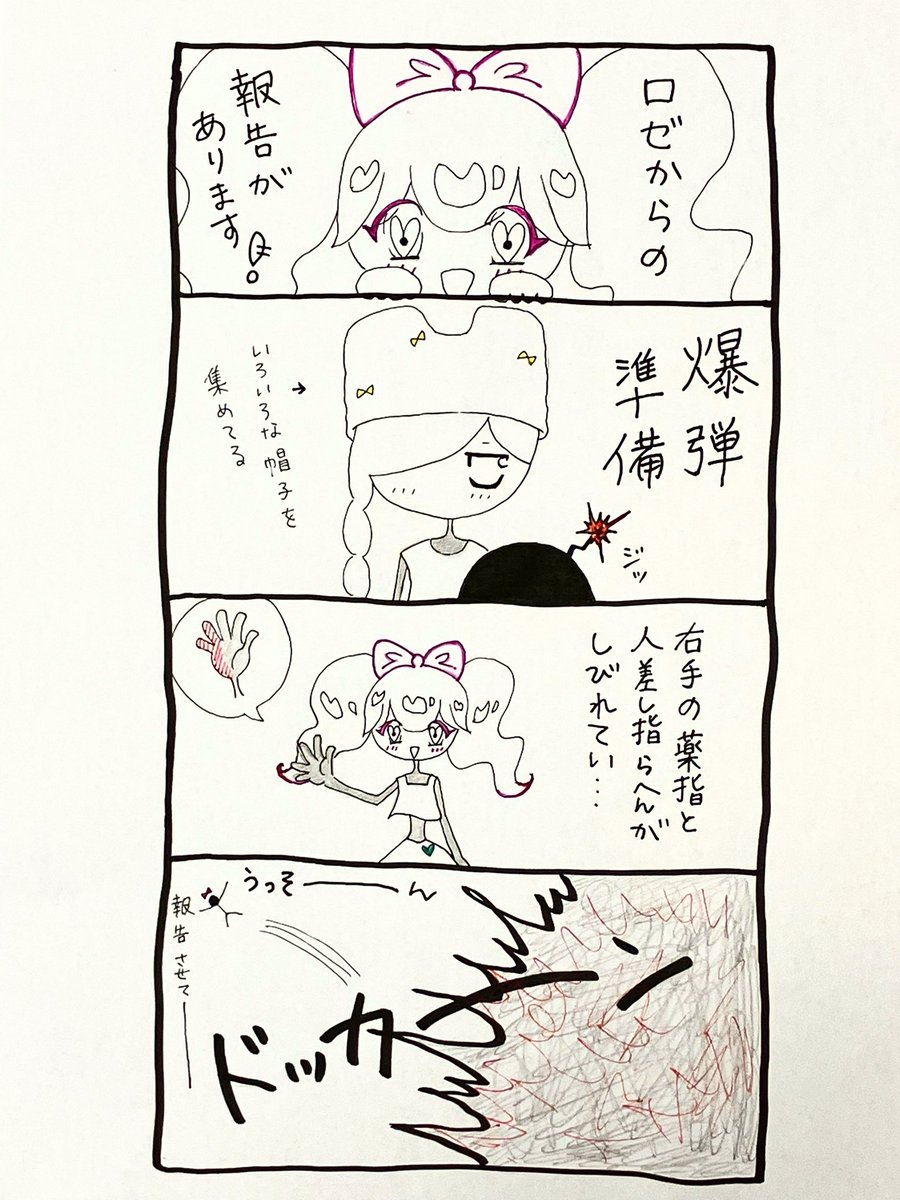 ロゼからの
報告が
あります
爆弾
準備
いろいろな帽子を
集めてる
ジッ
右手の薬指と
人差し指らへんが
しびれてい...
うっそーーん
報告させてー
ドッカーーン